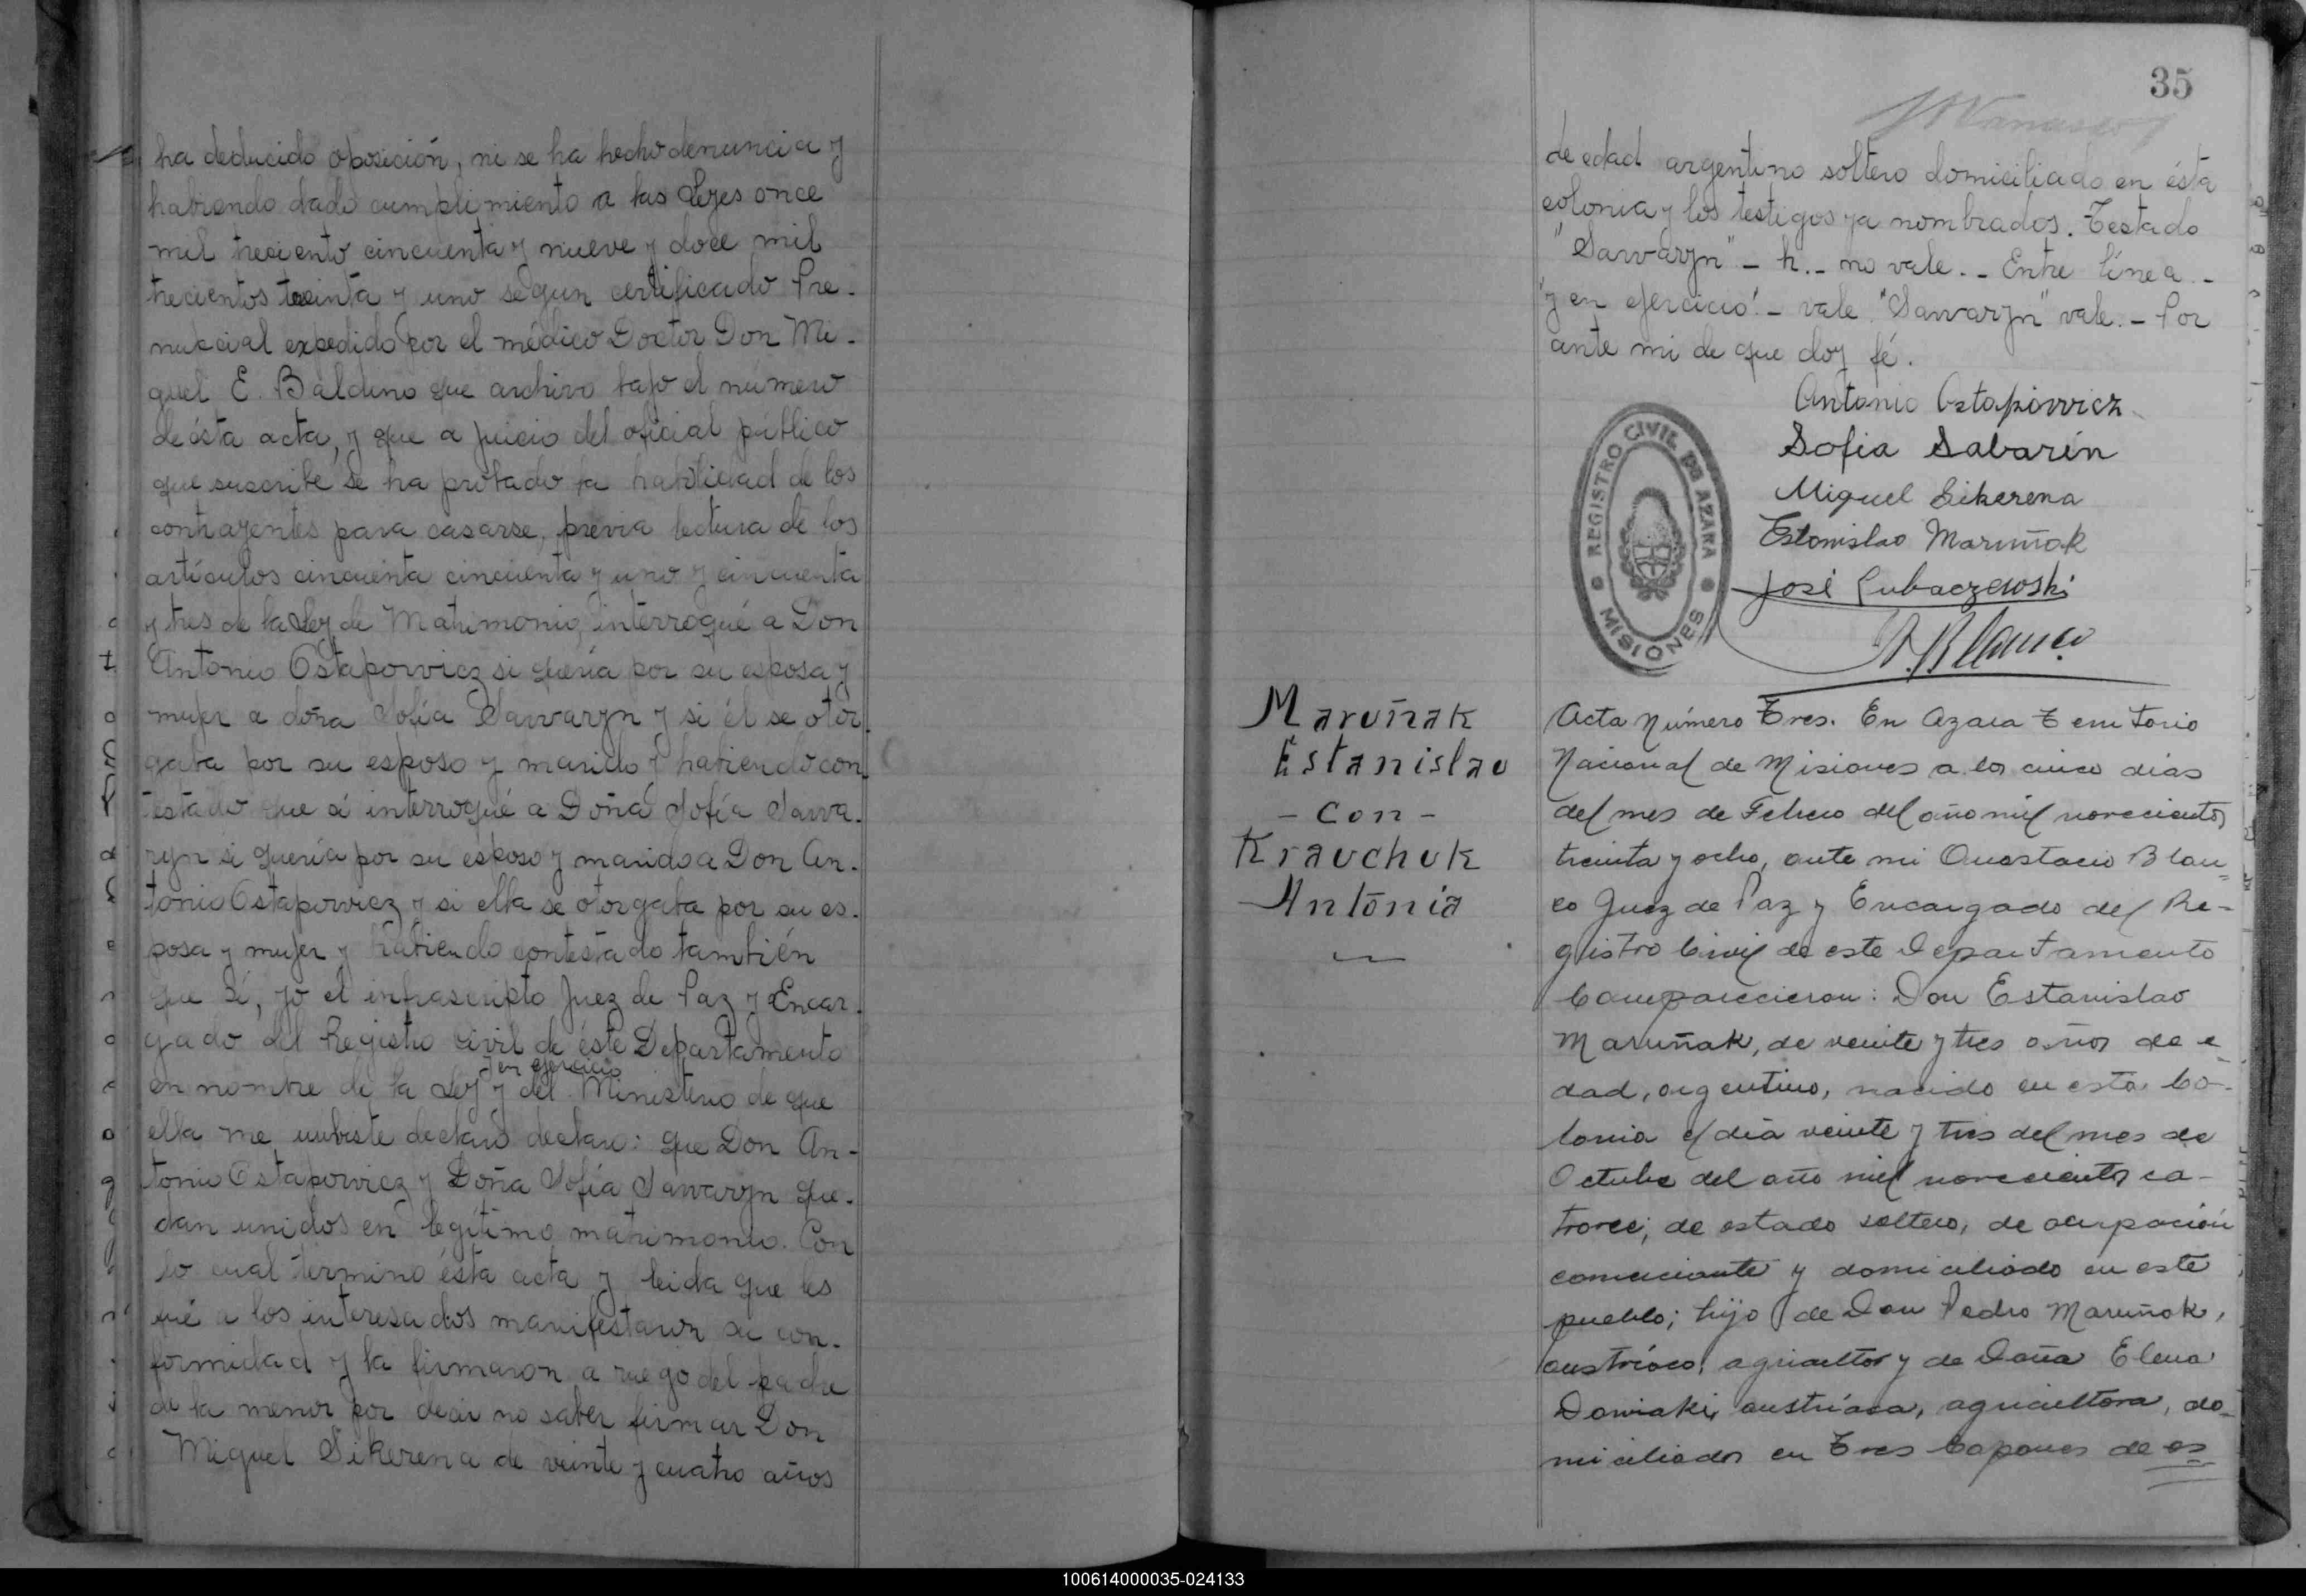 ha deducido oposición, ni se ha hecho denuncia y
habiendo dado cumplimiento a las Leyes once
mil treciento cincuenta y nueve y doce mil
trecientos treinta y uno segun certificado Pre-
nupcial expedido por el médico Doctor Don Mi-
guel E. Baldino que archivo bajo el número
de ésta acta, y que a juicio del oficial público
que suscribe se ha probado la habilidad de los
contrayentes para casarse, previa lectura de los
artículos cincuenta cincuenta y uno y cincuenta
y tres de la Ley de Matrimonio, interrogué a Don
Antonio Ostapowicz si quería por su esposa y
mujer a doña Sofía Sawaryn y si él se otor-
gaba por su esposo y marido y habiendo con-
testado que sí interrogué a Doña Sofía Sawa-
ryn si quería por su esposo y marido a Don An-
tonio Ostapowicz y si ella se otorgaba por su es-
posa y mujer y habiendo contestado también
que sí, yo el infrascripto Juez de Paz y Encar-
gado del Registro Civil de éste Departamento
y en ejercicio
en nombre de la Ley y del Ministerio de que
ella me declaro: que Don An-
tonio Ostapowicz y Doña Sofía Sawaryn que-
dan unidos en legítimo matrimonio. Con
lo cual termino ésta acta y leida que les
fué a los interesados manifestaron su con-
formidad y la firmaron a ruego del padre
de la menor por decir no saber firmar Don
Miguel Sikerena de veinte y cuatro años
35
de edad argentino soltero domiciliado en ésta
colonia y los testigos ya nombrados. Testado
"Sawaryn" - h.- no vale.- Entre línea.-
"y en ejercicio".- vale. "Sawaryn" vale.- Por
ante mi de que doy fé.
Antonio Ostapowicz
Sofia Sabarin
Miguel Sikerena
Estanislao Maruñak
José Lubaczewski
A. Blanco
REGISTRO CIVIL DE AZARA
MISIONES
Maruñak
Estanislao
- Con -
Krauchuk
Antonia
Acta Número Tres. En Azara Territorio
Nacional de Misiones a los cinco dias
del mes de Febrero del año mil novecientos
treinta y ocho, ante mi Anastacio Blan-
co Juez de Paz y Encargado del Re-
gistro Civil de este Departamento
Comparecieron: Don Estanislao
Maruñak, de veinte y tres años de e-
dad, argentino, nacido en esta Co-
lonia el dia veinte y tres del mes de
Octubre del año mil novecientos ca-
torce; de estado soltero, de ocupación
comerciante y domiciliado en este
pueblo; hijo de Don Pedro Maruñak,
austríaco, agricultor y de Doña Elena
austríaca, agricultora, do-
miciliados en Tres Capones de es
100614000035-024133